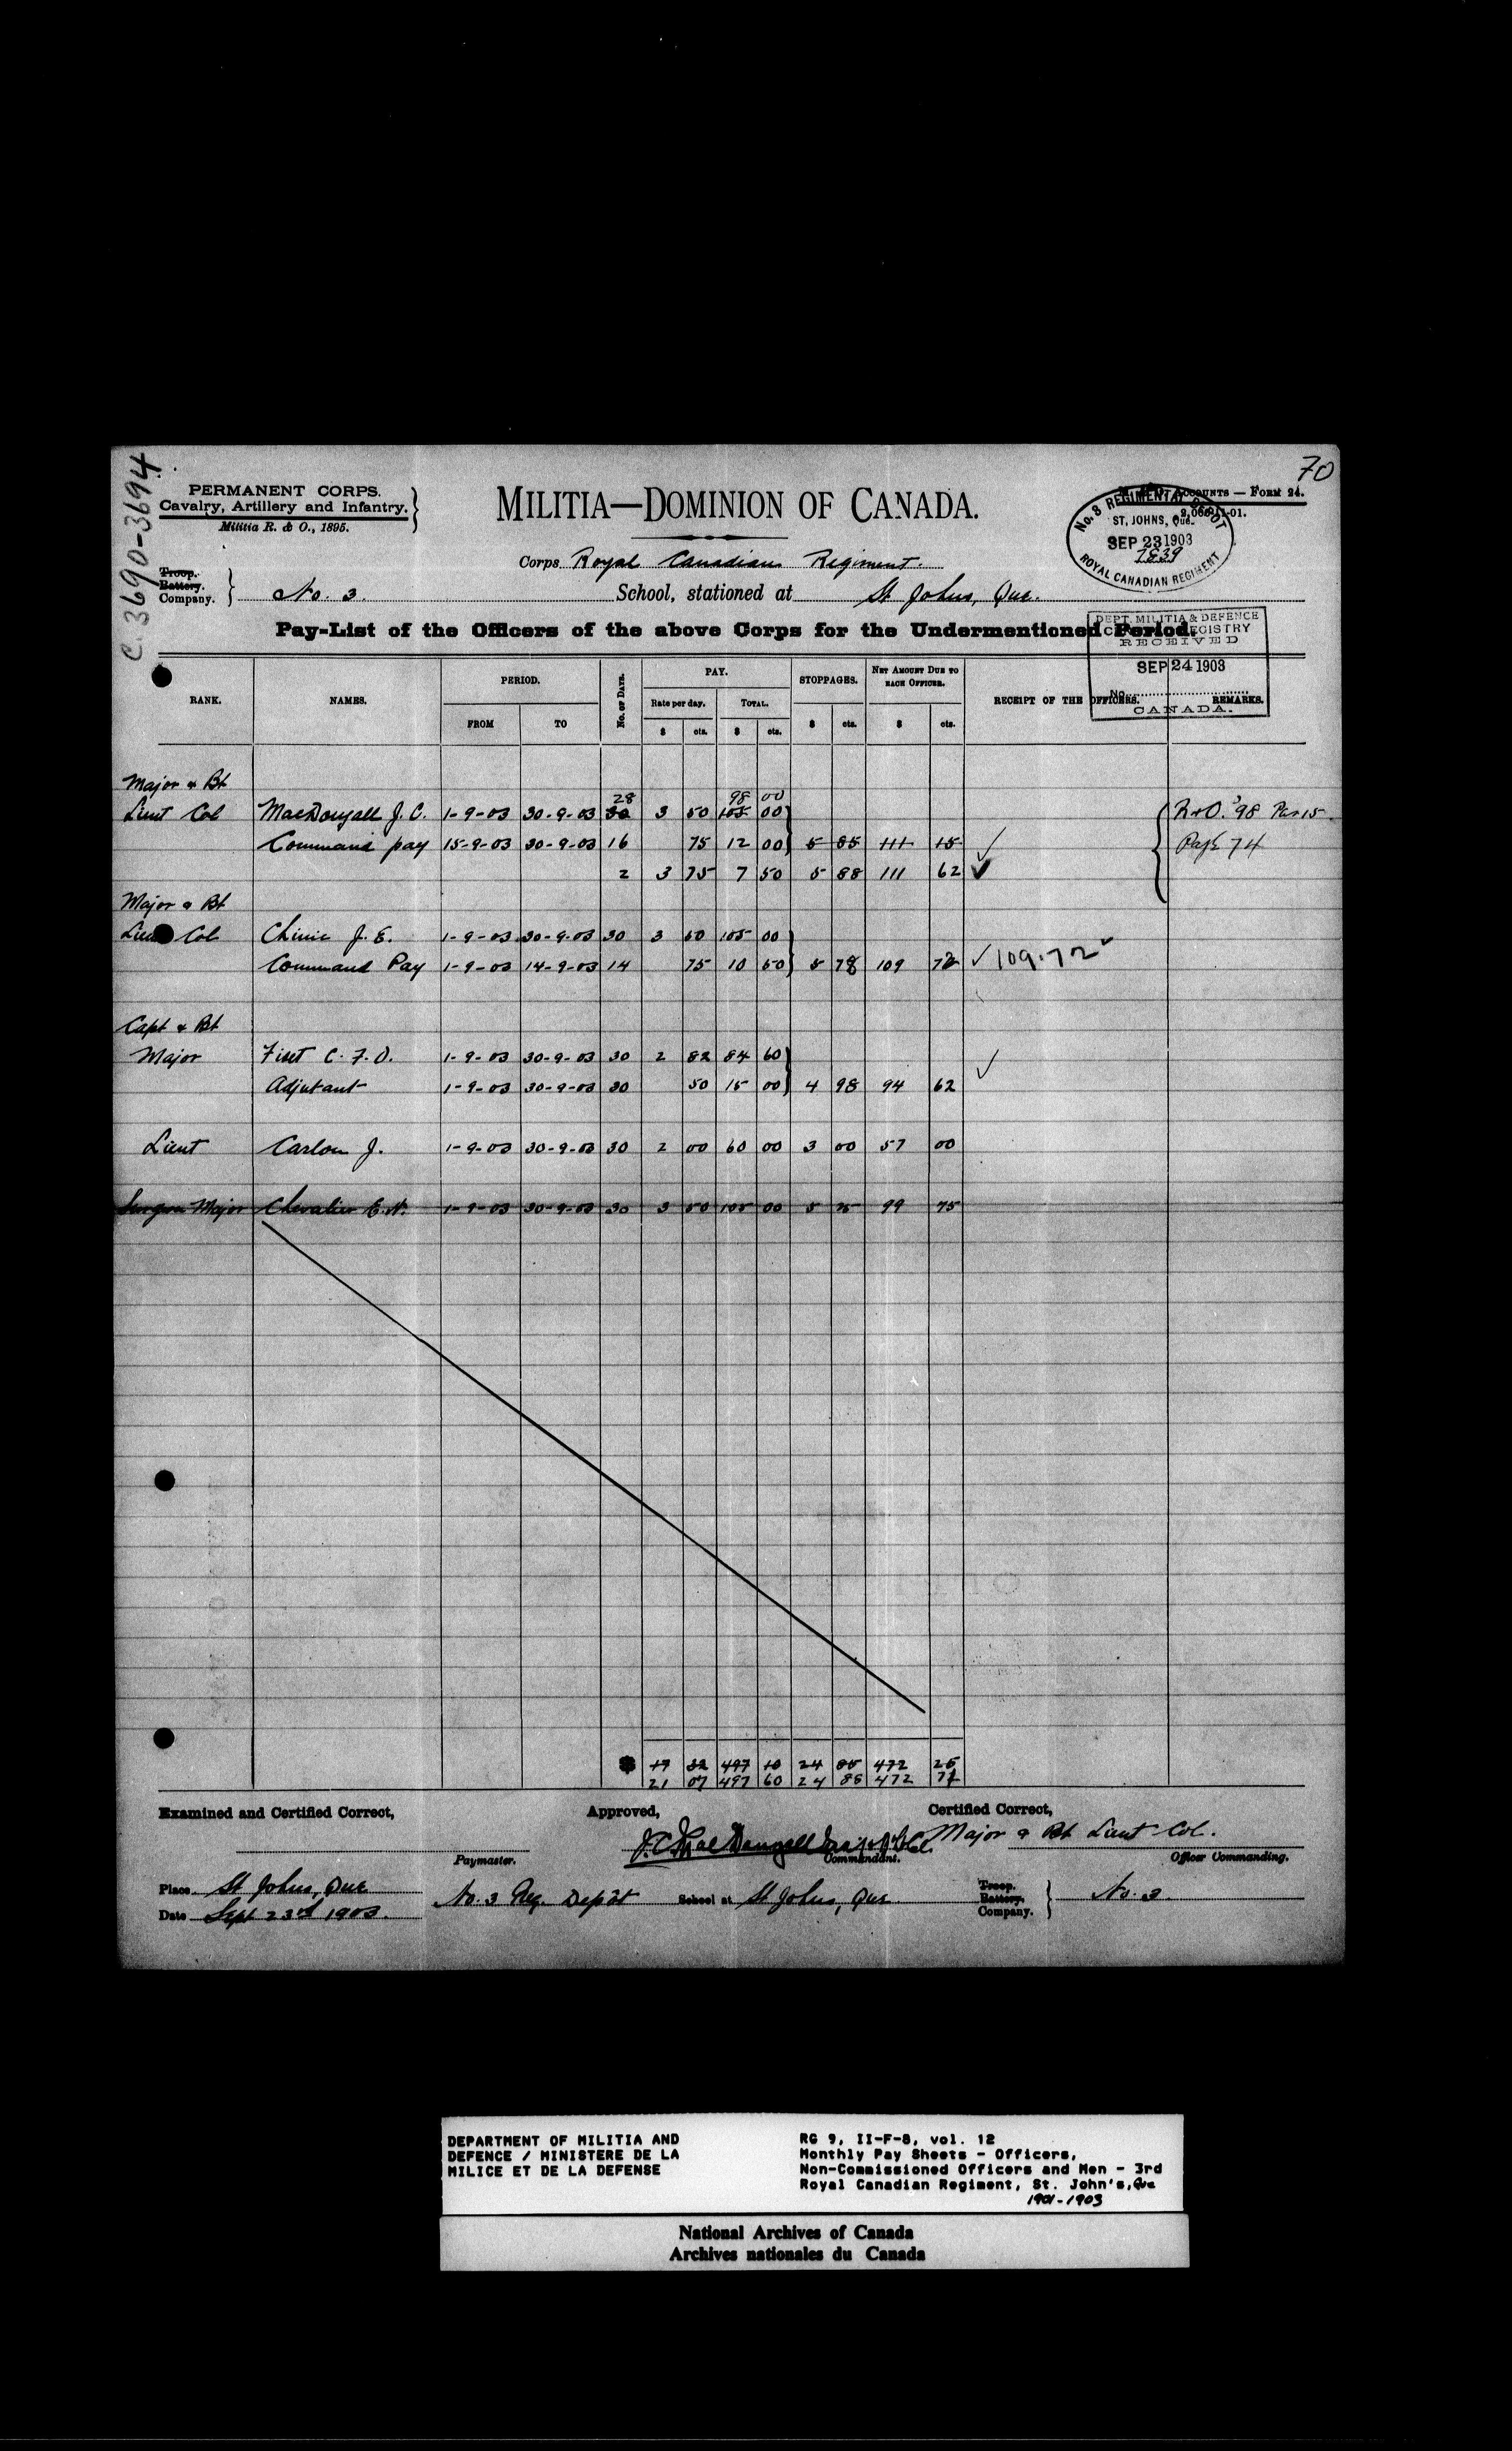 70
C. 3690-3694
PERMANENT CORPS.
Cavalry, Artillery and Infantry.
Militia R. & O., 1895.
MILITIA—DOMINION OF CANADA.
Accounts — Form 24.
No. 3 REGIMENTAL DEPOT
ST, JOHNS, Que.
SEP 23 1903
ROYAL CANADIAN REGIMENT
Corps Royal Canadian Regiment.
Troop.
Battery.
Company. } No. 3. School, stationed at St Johns, Que.
Pay-List of the Officers of the above Corps for the Undermentioned Period.
DEPT. MILITIA & DEFENCE
REGISTRY
RECEIVED
SEP 24 1903
No.
CANADA.
RANK. NAMES. PERIOD. No. of Days. PAY. STOPPAGES. Net Amount Due to each Officer. RECEIPT OF THE OFFICERS. REMARKS.
FROM TO Rate per day. Total.
$ cts. $ cts. $ cts. $ cts.
Major & Bt
28 98 00
Lieut Col MacDougall J. C. 1-9-03 30-9-03 30 3 50 105 00 R+O. '98 Par 15.
Command pay 15-9-03 30-9-03 16 75 12 00 5 85 111 15 Page 74
2 3 75 7 50 5 88 111 62
Major & Bt
Lieut Col Chinic J. E. 1-9-03 30-9-03 30 3 50 105 00
Command Pay 1-9-03 14-9-03 14 75 10 50 5 78 109 72 109.72
Capt & Bt
Major Fiset C. F. O. 1-9-03 30-9-03 30 2 82 84 60
Adjutant 1-9-03 30-9-03 30 50 15 00 4 98 94 62
Lieut Carlon J. 1-9-03 30-9-03 30 2 00 60 00 3 00 57 00
Surgeon Major Chevalier E. N. 1-9-03 30-9-03 30 3 50 105 00 5 25 99 75
17 32 497 10 24 85 472 25
21 07 497 60 24 88 472 72
Examined and Certified Correct, Approved, Certified Correct,
J. C. MacDougall Major & Bt Lieut Col.
Paymaster. Commandant. Officer Commanding.
Place St Johns, Que No. 3 Reg. Depôt School at St Johns, Que
Troop.
Battery.
Company. } No. 3
Date Sept 23rd 1903.
DEPARTMENT OF MILITIA AND
DEFENCE / MINISTERE DE LA
MILICE ET DE LA DEFENSE
RG 9, II-F-8, vol. 12
Monthly Pay Sheets - Officers,
Non-Commissioned Officers and Men - 3rd
Royal Canadian Regiment, St. John's, Que
1901-1903
National Archives of Canada
Archives nationales du Canada